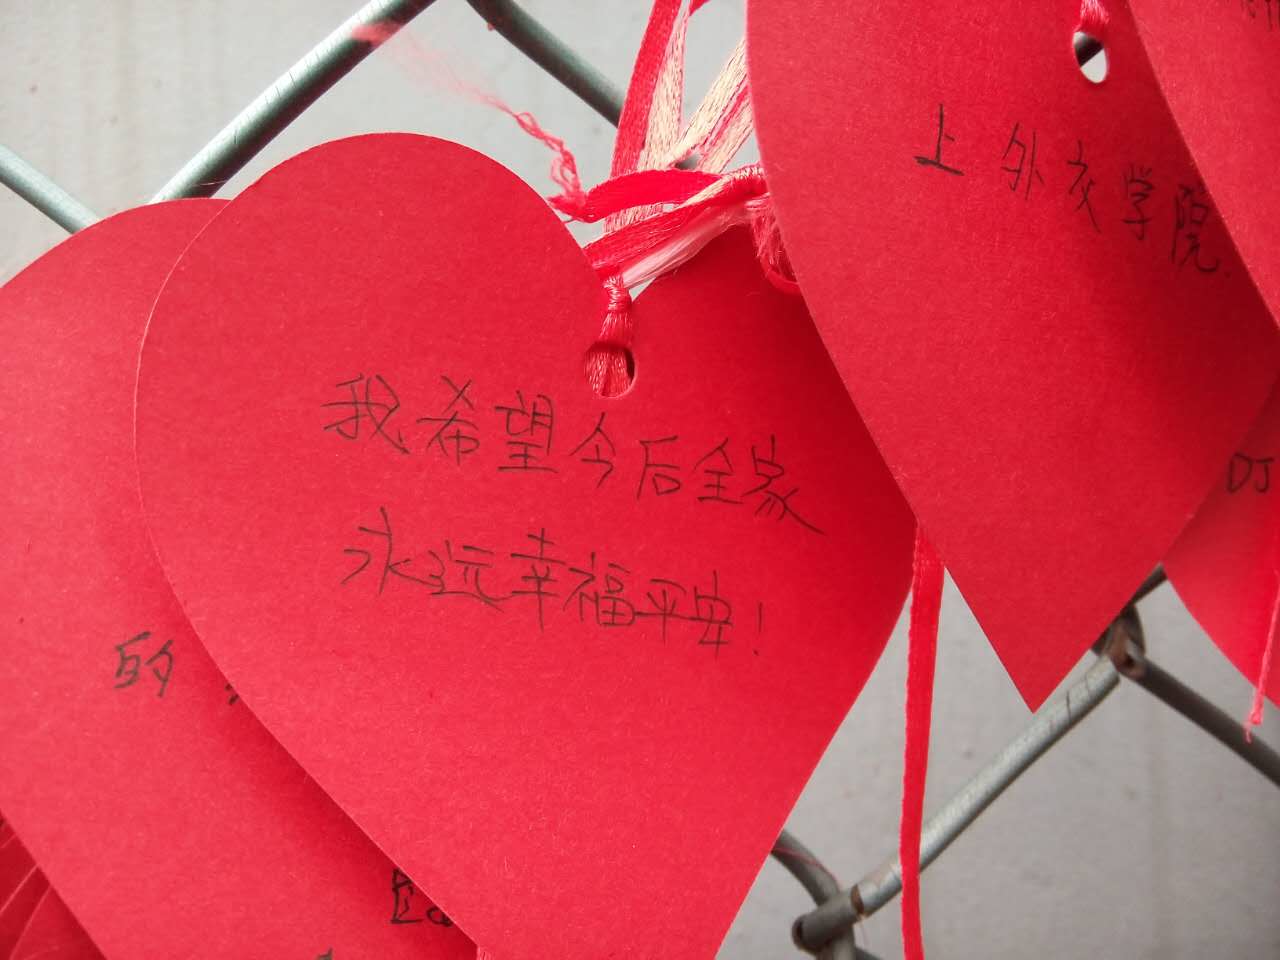 上外交学院.
我希望今后全家
永远幸福平安！
DJ
的